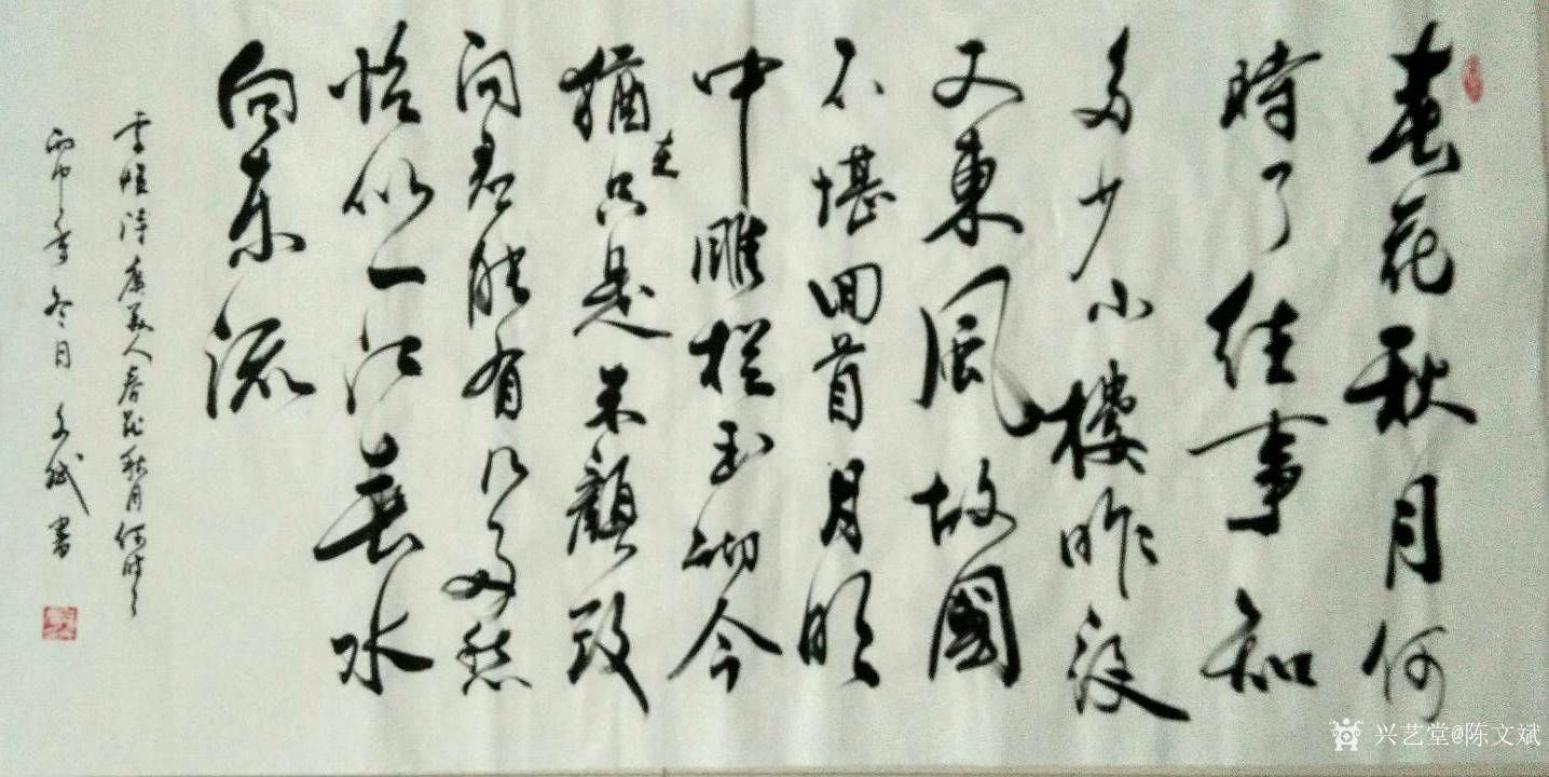 春花秋月何
時了往事知
多少小樓昨夜
又東風故國
不堪回首月明
中雕栏玉砌今
猶在只是朱顏改
问君能有几多愁
恰似一江春水
向东流
李煜诗虞美人春花秋月何时了
丙申年冬月文斌書
兴艺堂@陈文斌